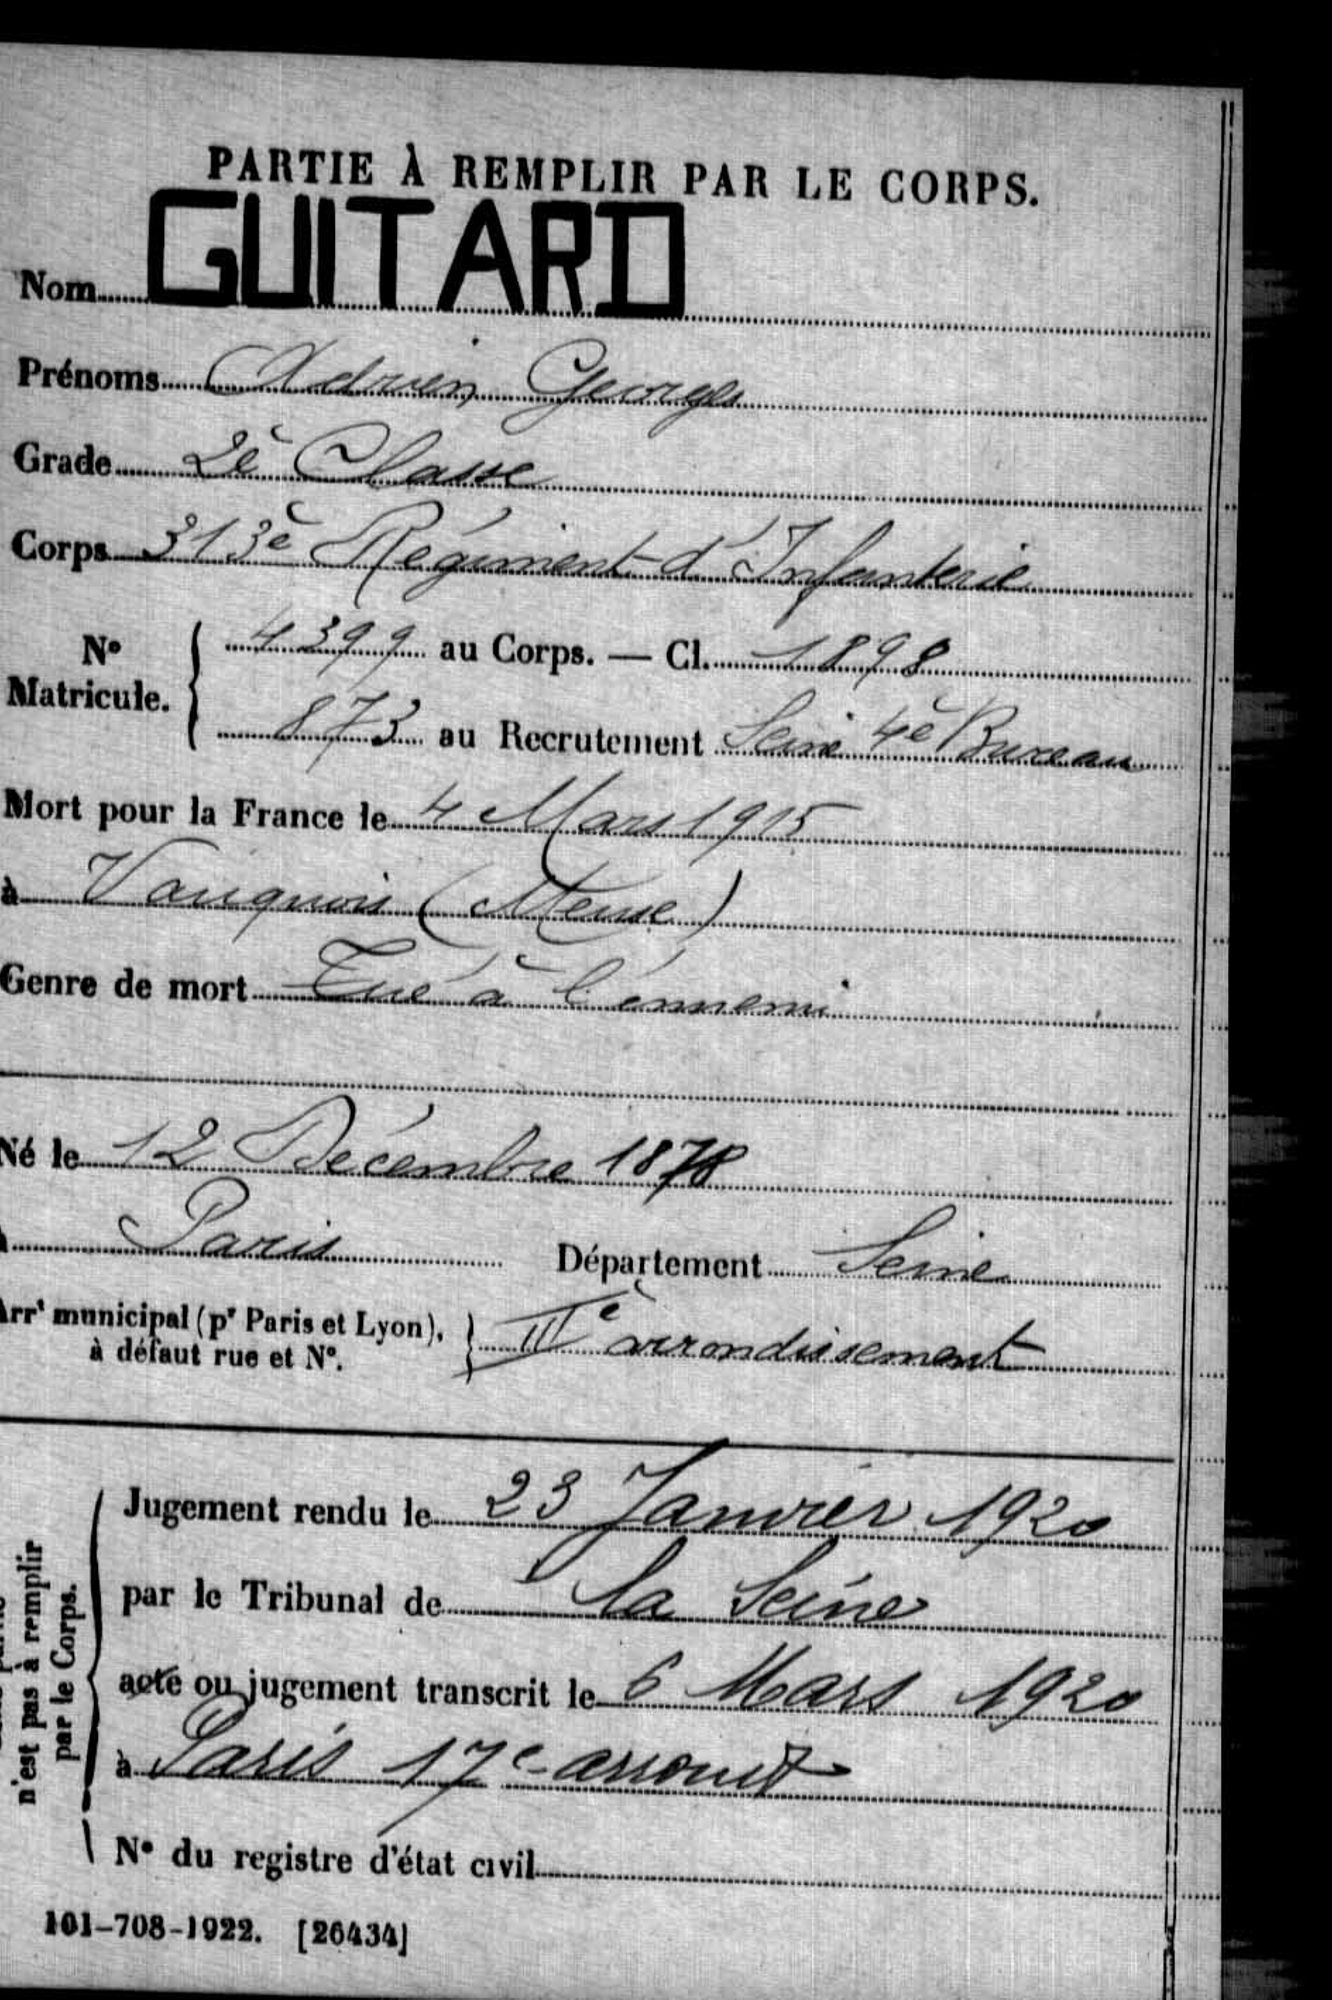 PARTIE À REMPLIR PAR LE CORPS.
Nom GUITARD
Prénoms Adrien Georges
Grade 2è Classe
Corps 313è Régiment d'Infanterie
N° Matricule. 4399 au Corps. — Cl. 1898
873 au Recrutement Seine 4è Bureau
Mort pour la France le 4 Mars 1915
à Vauquois (Meuse)
Genre de mort Tué à l'ennemi
Né le 12 Décembre 1878
à Paris Département Seine
Arrt municipal (pr Paris et Lyon), à défaut rue et N°. IIè arrondissement
n'est pas à remplir par le Corps.
Jugement rendu le 23 Janvier 1920
par le Tribunal de la Seine
acte ou jugement transcrit le 6 Mars 1920
à Paris 17e arrondt
N° du registre d'état civil
101-708-1922. [26434]